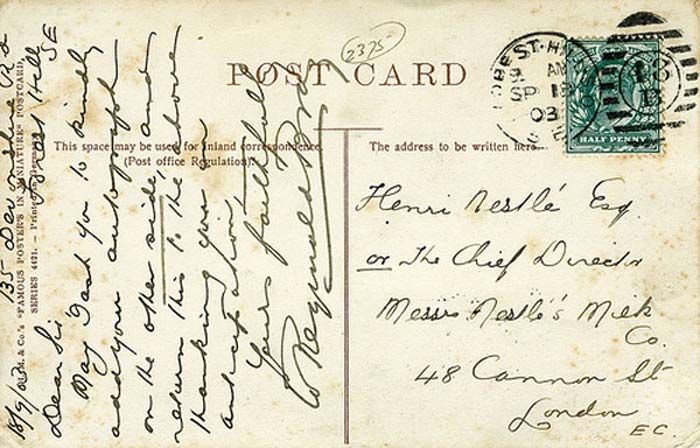 2375
POST CARD
This space may be used for Inland correspondence
(Post office Regulation).
The address to be written here.
"FAMOUS POSTERS IN MINIATURE" POSTCARD,
SERIES 4421. — Printed in
135 Devonshire Rd
Forest Hill
SE
18/9/03
Dear Sir
May I ask you to kindly
add your autograph
on the other side, and
return this to the above
thanking you in
anticipation,
Yours faithfully
W Reginald Bray
FOREST-HILL
AM
SP 18
03
S.E
HALF PENNY
Henri Nestlé Esq.
or The Chief Director
Messrs Nestlé's Milk
Co.
48 Cannon St
London
E C.